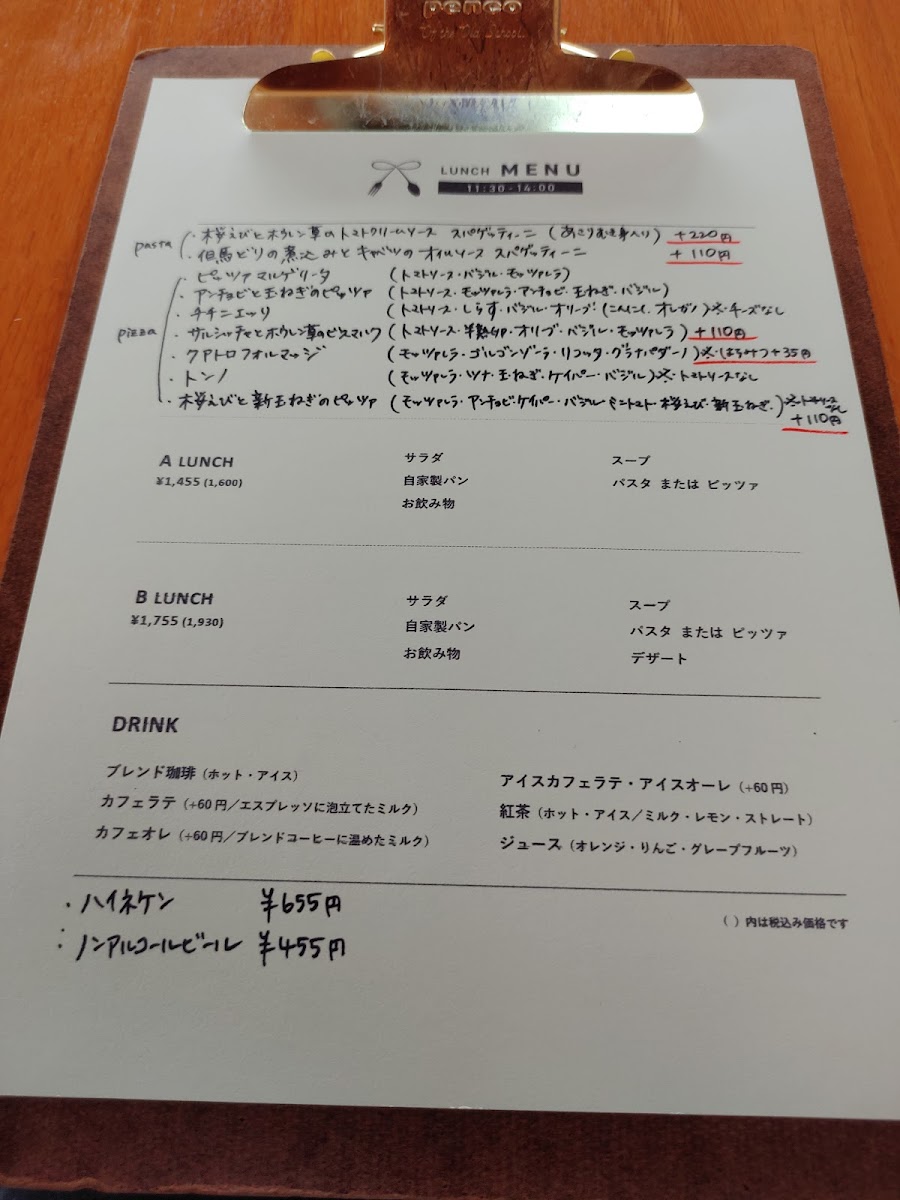 penco
LUNCH MENU
11:30-14:00
pasta
・桜えびとホウレン草のトマトクリームソース スパゲッティーニ (あさりむき身入り) +220円
・但馬ドリの煮込みとキャベツのオイルソース スパゲッティーニ +110円
pizza
・ピッツァマルゲリータ (トマトソース・バジル・モッツァレラ)
・アンチョビと玉ねぎのピッツァ (トマトソース・モッツァレラ・アンチョビ・玉ねぎ・バジル)
・チチニエッリ (トマトソース・しらす・バジル・オリーブ・にんにく、オレガノ) ※チーズなし
・サルシャッチャとホウレン草のビスマルク (トマトソース・半熟卵・オリーブ・バジル・モッツァレラ) +110円
・クアトロフォルマッジ (モッツァレラ・ゴルゴンゾーラ・リコッタ・グラナパダーノ) ※はちみつ+35円
・トンノ (モッツァレラ・ツナ・玉ねぎ・ケイパー・バジル) ※トマトソースなし
・桜えびと新玉ねぎのピッツァ (モッツァレラ・アンチョビ・ケイパー・バジル・ミニトマト・桜えび・新玉ねぎ・) ※トマトソースなし
+110円
A LUNCH サラダ スープ
¥1,455 (1,600) 自家製パン パスタ または ピッツァ
お飲み物
B LUNCH サラダ スープ
¥1,755 (1,930) 自家製パン パスタ または ピッツァ
お飲み物 デザート
DRINK
ブレンド珈琲 (ホット・アイス) アイスカフェラテ・アイスオーレ (+60円)
カフェラテ (+60円/エスプレッソに泡立てたミルク) 紅茶 (ホット・アイス/ミルク・レモン・ストレート)
カフェオレ (+60円/ブレンドコーヒーに温めたミルク) ジュース (オレンジ・りんご・グレープフルーツ)
・ハイネケン ¥655円
( ) 内は税込み価格です
・ノンアルコールビール ¥455円